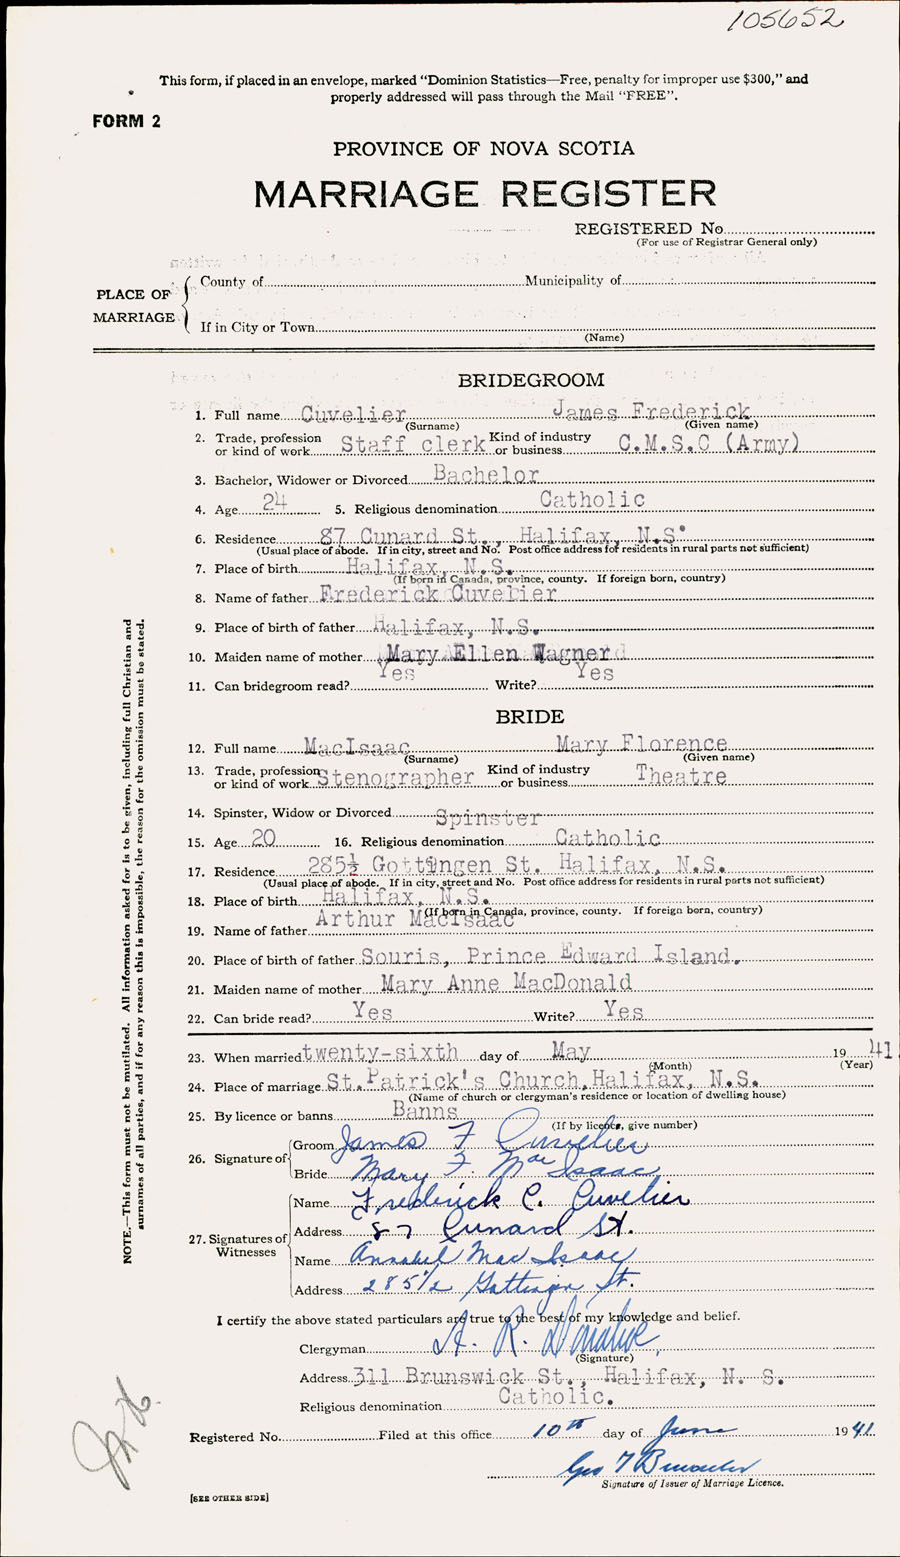 105652
This form, if placed in an envelope, marked “Dominion Statistics—Free, penalty for improper use $300,” and
properly addressed will pass through the Mail “FREE”.
FORM 2
PROVINCE OF NOVA SCOTIA
MARRIAGE REGISTER
REGISTERED No.
(For use of Registrar General only)
PLACE OF MARRIAGE
County of Municipality of
If in City or Town
(Name)
BRIDEGROOM
1. Full name Cuvelier James Frederick
(Surname) (Given name)
2. Trade, profession or kind of work Staff clerk Kind of industry or business C.M.S.C (Army)
3. Bachelor, Widower or Divorced Bachelor
4. Age 24 5. Religious denomination Catholic
6. Residence 87 Cunard St., Halifax, N.S.
(Usual place of abode. If in city, street and No. Post office address for residents in rural parts not sufficient)
7. Place of birth Halifax, N.S.
(If born in Canada, province, county. If foreign born, country)
8. Name of father Frederick Cuvelier
9. Place of birth of father Halifax, N.S.
10. Maiden name of mother Mary Ellen Wagner
11. Can bridegroom read? Yes Write? Yes
BRIDE
12. Full name MacIsaac Mary Florence
(Surname) (Given name)
13. Trade, profession or kind of work Stenographer Kind of industry or business Theatre
14. Spinster, Widow or Divorced Spinster
15. Age 20 16. Religious denomination Catholic
17. Residence 285½ Gottingen St. Halifax, N.S.
(Usual place of abode. If in city, street and No. Post office address for residents in rural parts not sufficient)
18. Place of birth Halifax, N.S.
(If born in Canada, province, county. If foreign born, country)
19. Name of father Arthur MacIsaac
20. Place of birth of father Souris, Prince Edward Island.
21. Maiden name of mother Mary Anne MacDonald
22. Can bride read? Yes Write? Yes
23. When married twenty-sixth day of May 19 41
(Month) (Year)
24. Place of marriage St. Patrick's Church, Halifax, N.S.
(Name of church or clergyman's residence or location of dwelling house)
25. By licence or banns Banns
(If by licence, give number)
26. Signature of
Groom James F Cuvelier
Bride Mary F MacIsaac
27. Signatures of Witnesses
Name Frederick C. Cuvelier
Address 87 Cunard St.
Name Annabel MacIsaac
Address 285 1/2 Gottingen St.
I certify the above stated particulars are true to the best of my knowledge and belief.
Clergyman R.
(Signature)
Address 311 Brunswick St., Halifax, N. S.
Religious denomination Catholic.
Registered No. Filed at this office 10th day of June 19 41
Geo
Signature of Issuer of Marriage Licence.
[SEE OTHER SIDE]
NOTE.—This form must not be mutilated. All information asked for is to be given, including full Christian and
surnames of all parties, and if for any reason this is impossible, the reason for the omission must be stated.